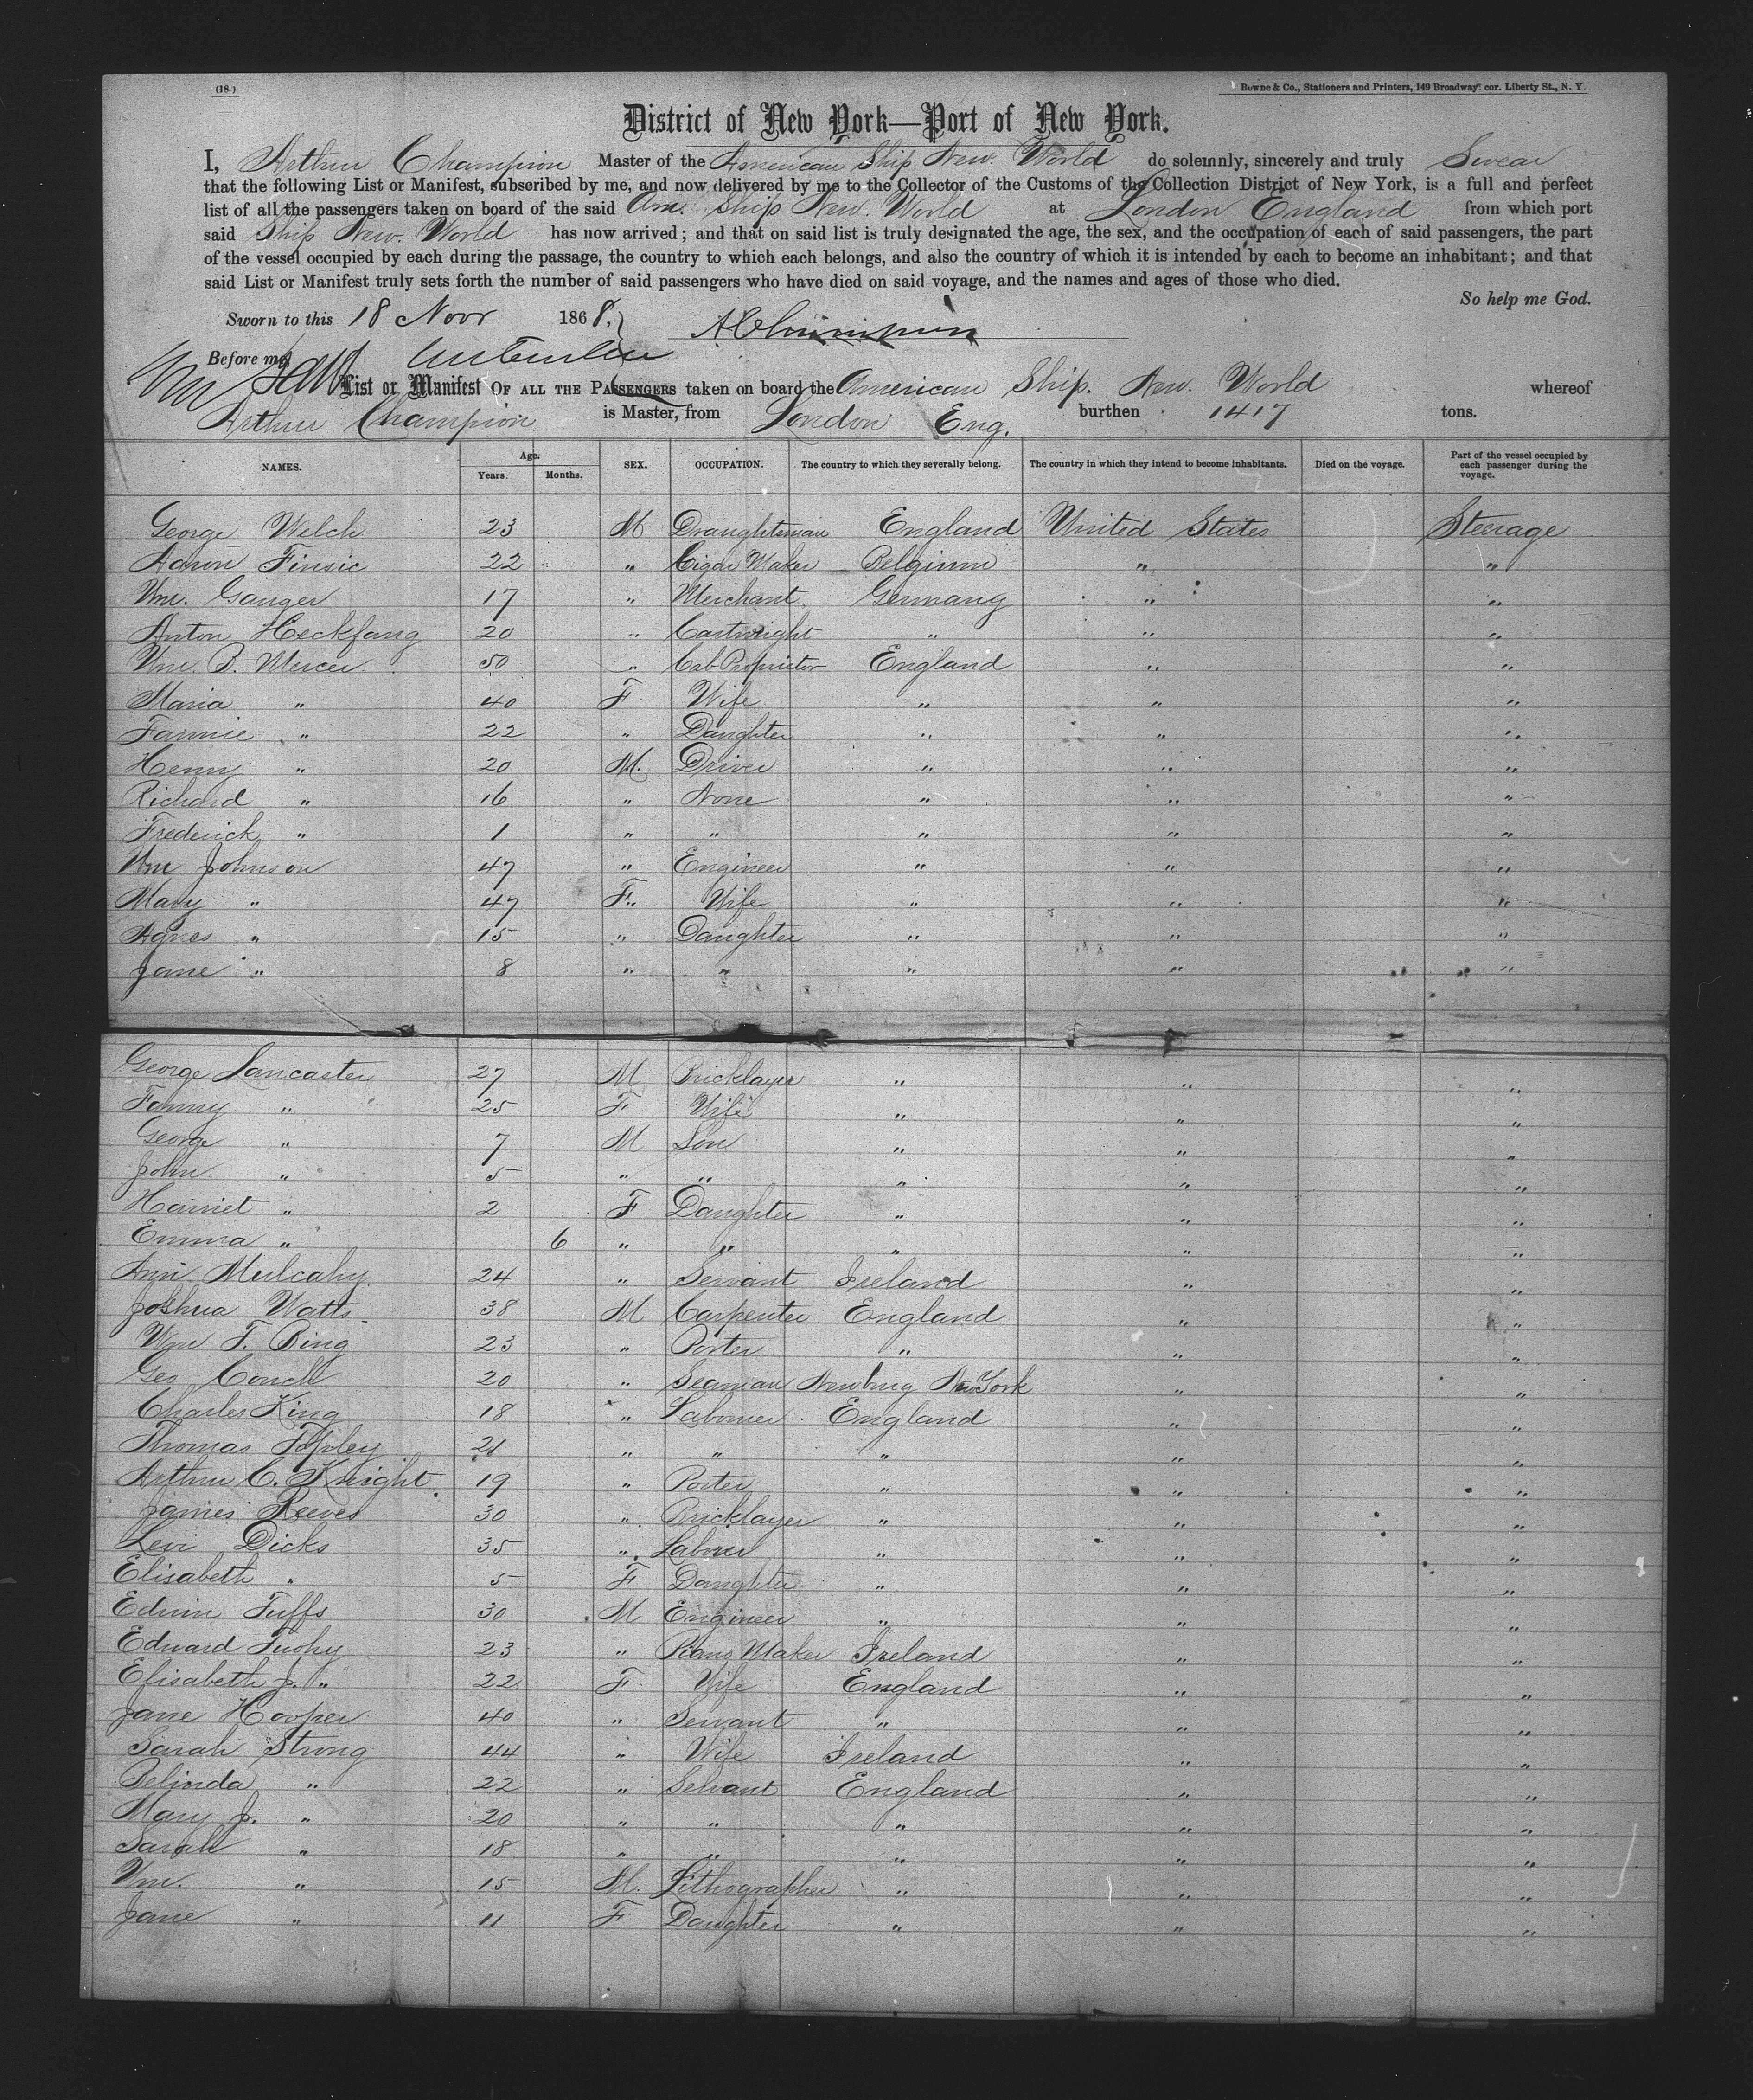 (18.)
Bowne & Co., Stationers and Printers, 149 Broadway cor. Liberty St., N. Y.
District of New York—Port of New York.
I, Arthur Champion Master of the American Ship New. World do solemnly, sincerely and truly Swear
that the following List or Manifest, subscribed by me, and now delivered by me to the Collector of the Customs of the Collection District of New York, is a full and perfect
list of all the passengers taken on board of the said Am. Ship New. World at London England from which port
said Ship New. World has now arrived; and that on said list is truly designated the age, the sex, and the occupation of each of said passengers, the part
of the vessel occupied by each during the passage, the country to which each belongs, and also the country of which it is intended by each to become an inhabitant; and that
said List or Manifest truly sets forth the number of said passengers who have died on said voyage, and the names and ages of those who died.
So help me God.
Sworn to this 18 Novr 1868, A Champion
Before me
List or Manifest OF ALL THE PASSENGERS taken on board the American Ship. New. World whereof
Arthur Champion is Master, from London Eng. burthen 1417 tons.
NAMES. Age. Years. Months. SEX. OCCUPATION. The country to which they severally belong. The country in which they intend to become inhabitants. Died on the voyage. Part of the vessel occupied by each passenger during the voyage.
George Welch 23 M Draughtsman England United States Steerage
Aaron Finsic 22 " Cigar Maker Belgium " "
Wm. Ganger 17 " Merchant Germany " "
Anton Heckfang 20 " Cartwright " " "
Wm. B. Mercer 50 " Cab Proprietor England " "
Maria " 40 F Wife " " "
Fannie " 22 " Daughter " " "
Henry " 20 M. Driver " " "
Richard " 16 " None " " "
Frederick " 1 " " " " "
Wm Johnson 47 " Engineer " " "
Mary " 47 F. Wife " " "
Agnes " 15 " Daughter " " "
Jane " 8 " " " " "
George Lancaster 27 M Bricklayer " " "
Fanny " 25 F Wife " " "
George " 7 M Son " " "
John " 5 " " " " "
Harriet " 2 F Daughter " " "
Emma " 6 " " " " "
Ann Mulcahy 24 " Servant Ireland " "
Joshua Watts 38 M Carpenter England " "
Wm F. Bing 23 " Porter " " "
Geo Couch 20 " Seaman Newburg New York " "
Charles King 18 " Labourer England " "
Thomas Topley 21 " " " " "
Arthur C. Knight 19 " Porter " " "
James Reeves 30 " Bricklayer " " "
Levi Dicks 35 " Laborer " " "
Elisabeth " 5 F Daughter " " "
Edwin Tuffs 30 M Engineer " " "
Edward Tuohy 23 " Piano Maker Ireland " "
Elisabeth J. " 22 F Wife England " "
Jane Hooper 40 " Servant " " "
Sarah Strong 44 " Wife Ireland " "
Belinda " 22 " Servant England " "
Mary J. " 20 " " " " "
Sarah " 18 " " " " "
Wm. " 15 M. Lithographer " " "
Jane " 11 F Daughter " " "